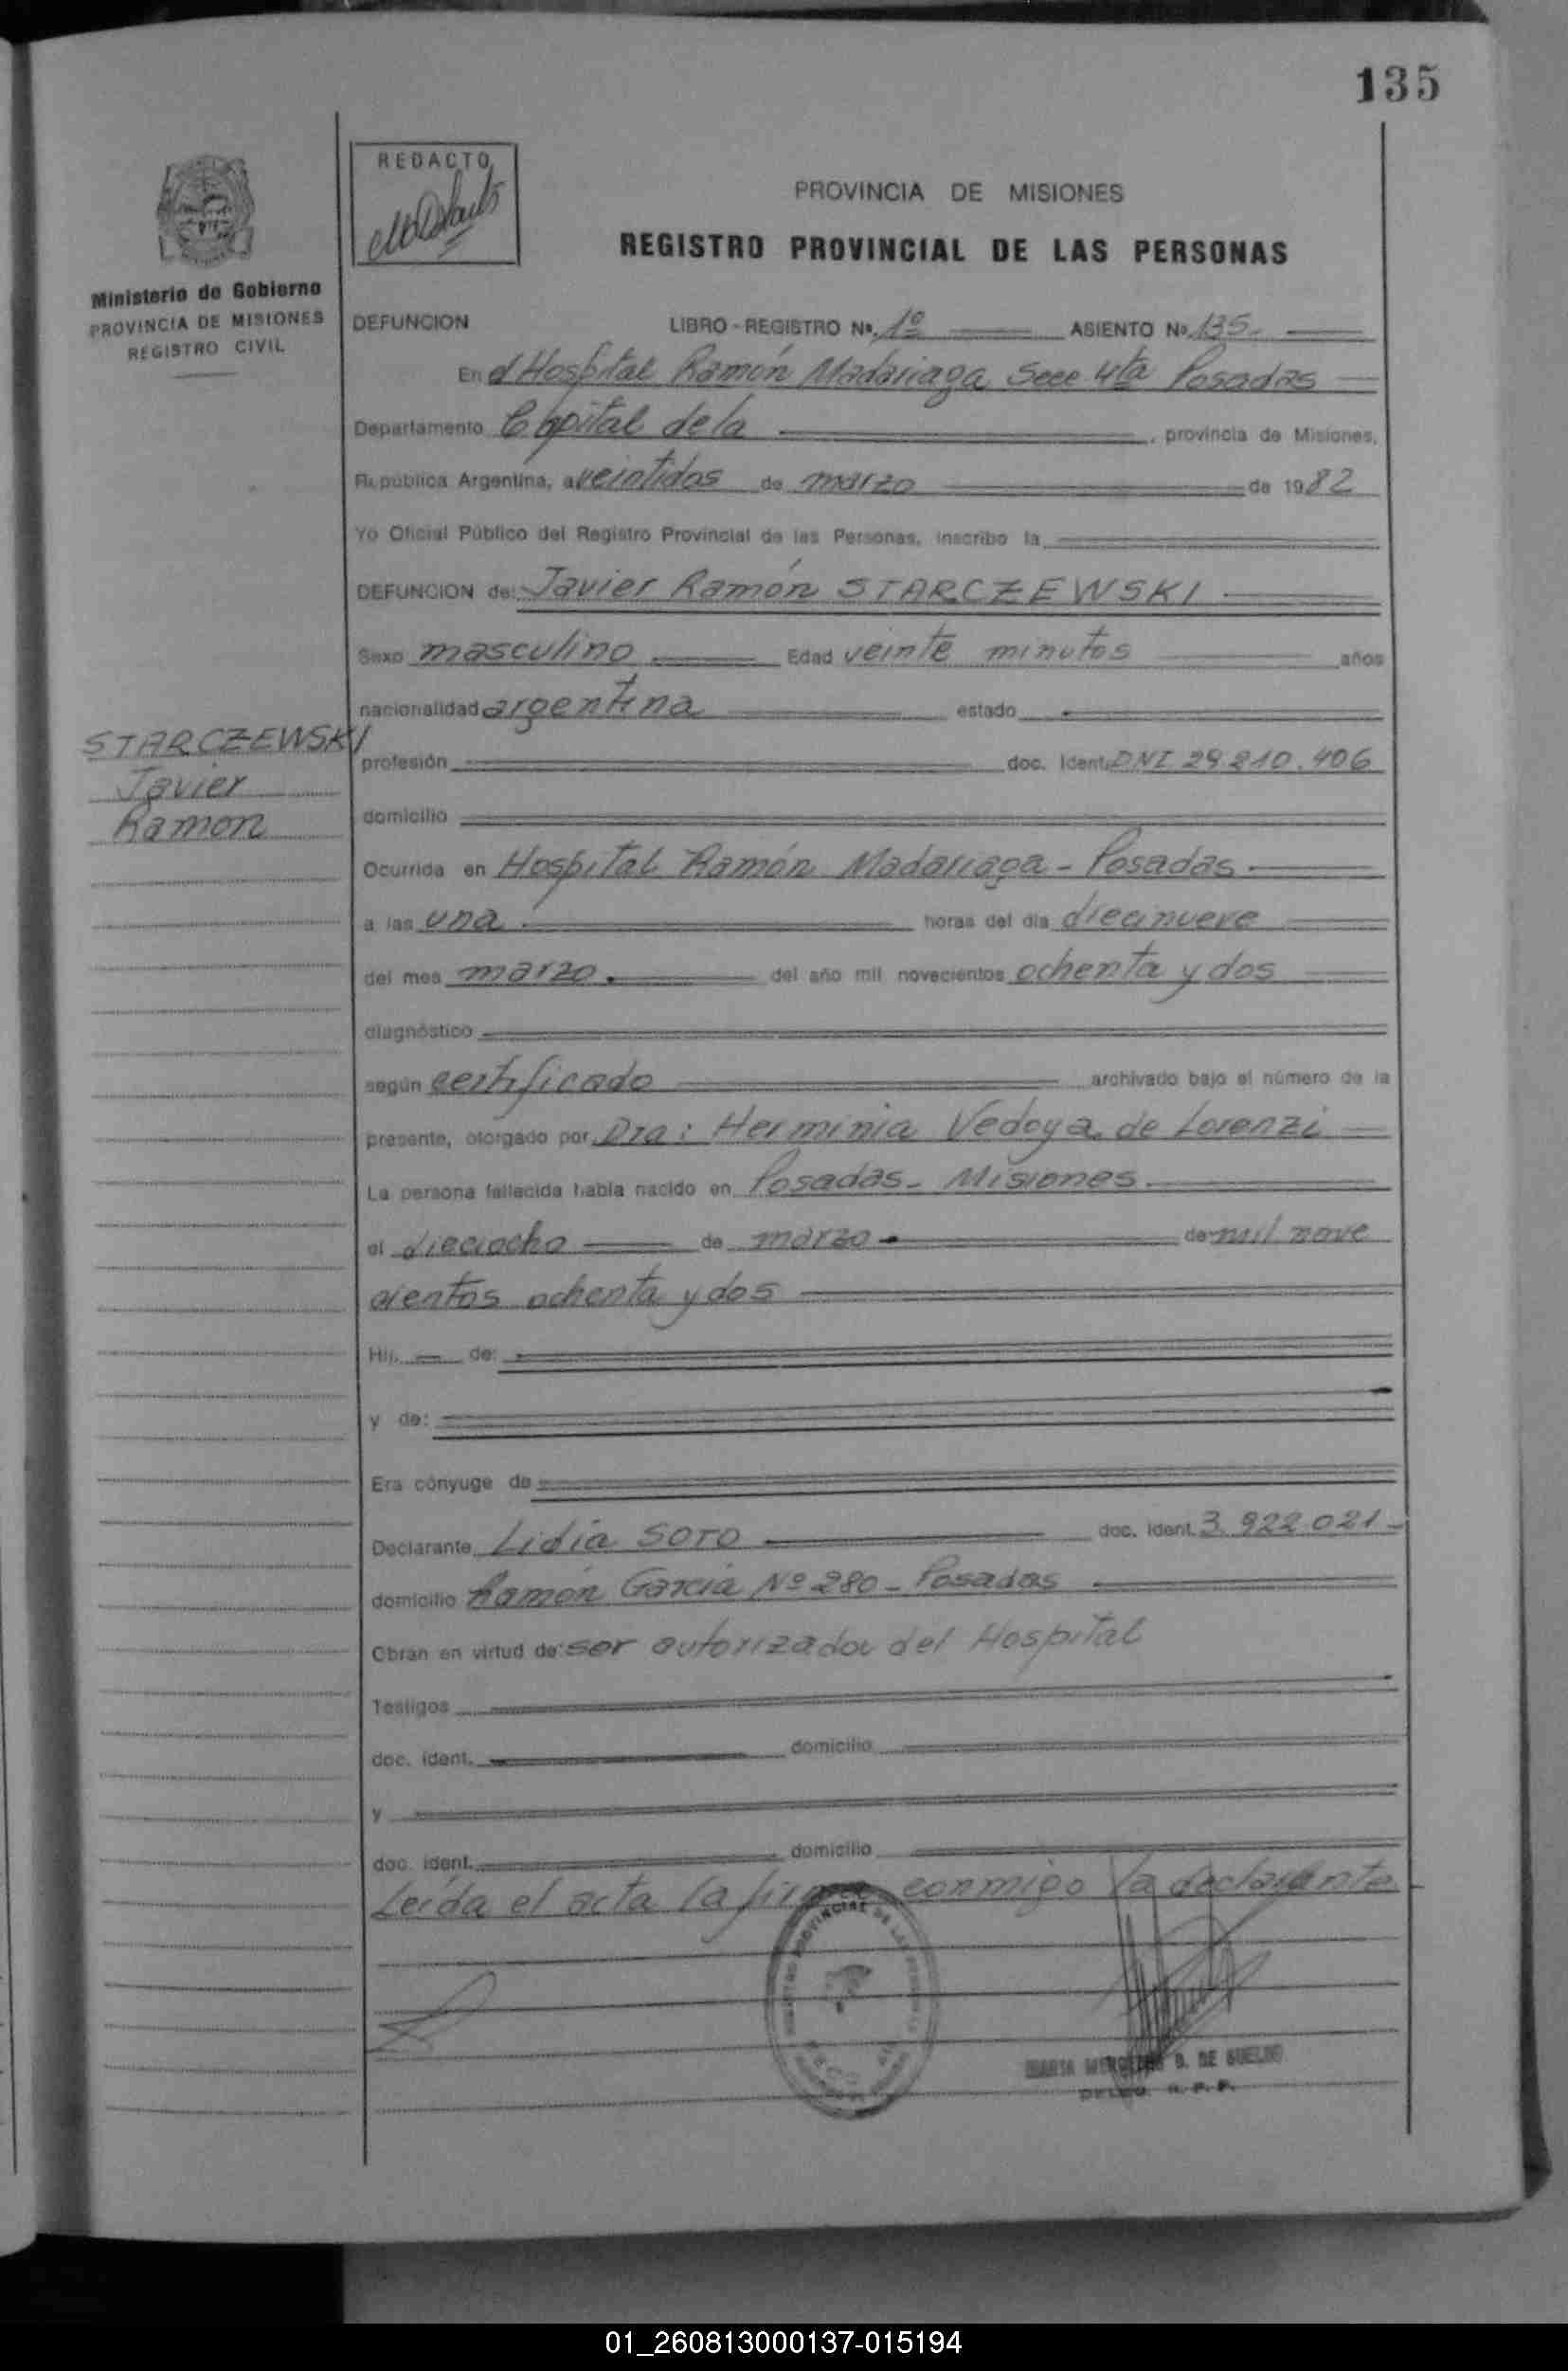 135
REDACTO
PROVINCIA DE MISIONES
REGISTRO PROVINCIAL DE LAS PERSONAS
Ministerio de Gobierno
PROVINCIA DE MISIONES
REGISTRO CIVIL
DEFUNCION LIBRO - REGISTRO Nº. 1º ASIENTO Nº 135.
En el Hospital Ramón Madariaga Secc 4ta Posadas
Departamento Capital de la , provincia de Misiones,
República Argentina, a veintidos de marzo de 1982
Yo Oficial Público del Registro Provincial de las Personas, inscribo la
DEFUNCION de: Javier Ramón STARCZEWSKI
Sexo masculino Edad veinte minutos años
nacionalidad argentina estado
STARCZEWSKI
Javier
Ramon
profesión doc. Ident. DNI 29.210.406
domicilio
Ocurrida en Hospital Ramón Madariaga - Posadas
a las una horas del día diecinueve
del mes marzo. del año mil novecientos ochenta y dos
diagnóstico
según certificado archivado bajo el número de la
presente, otorgado por Dra: Herminia Vedoya de Lorenzi
La persona fallecida había nacido en Posadas - Misiones.
el dieciocho de marzo de mil nove
cientos ochenta y dos
Hij. de:
y de:
Era cónyuge de
Declarante Lidia SOTO doc. ident. 3.922.021
domicilio Ramón García Nº 280 - Posadas
Obran en virtud de: ser autorizada del Hospital
Testigos
doc. ident. domicilio
y
doc. ident. domicilio
Leída el acta la firma conmigo la declarante
MARIA MERCEDES DE
01_260813000137-015194